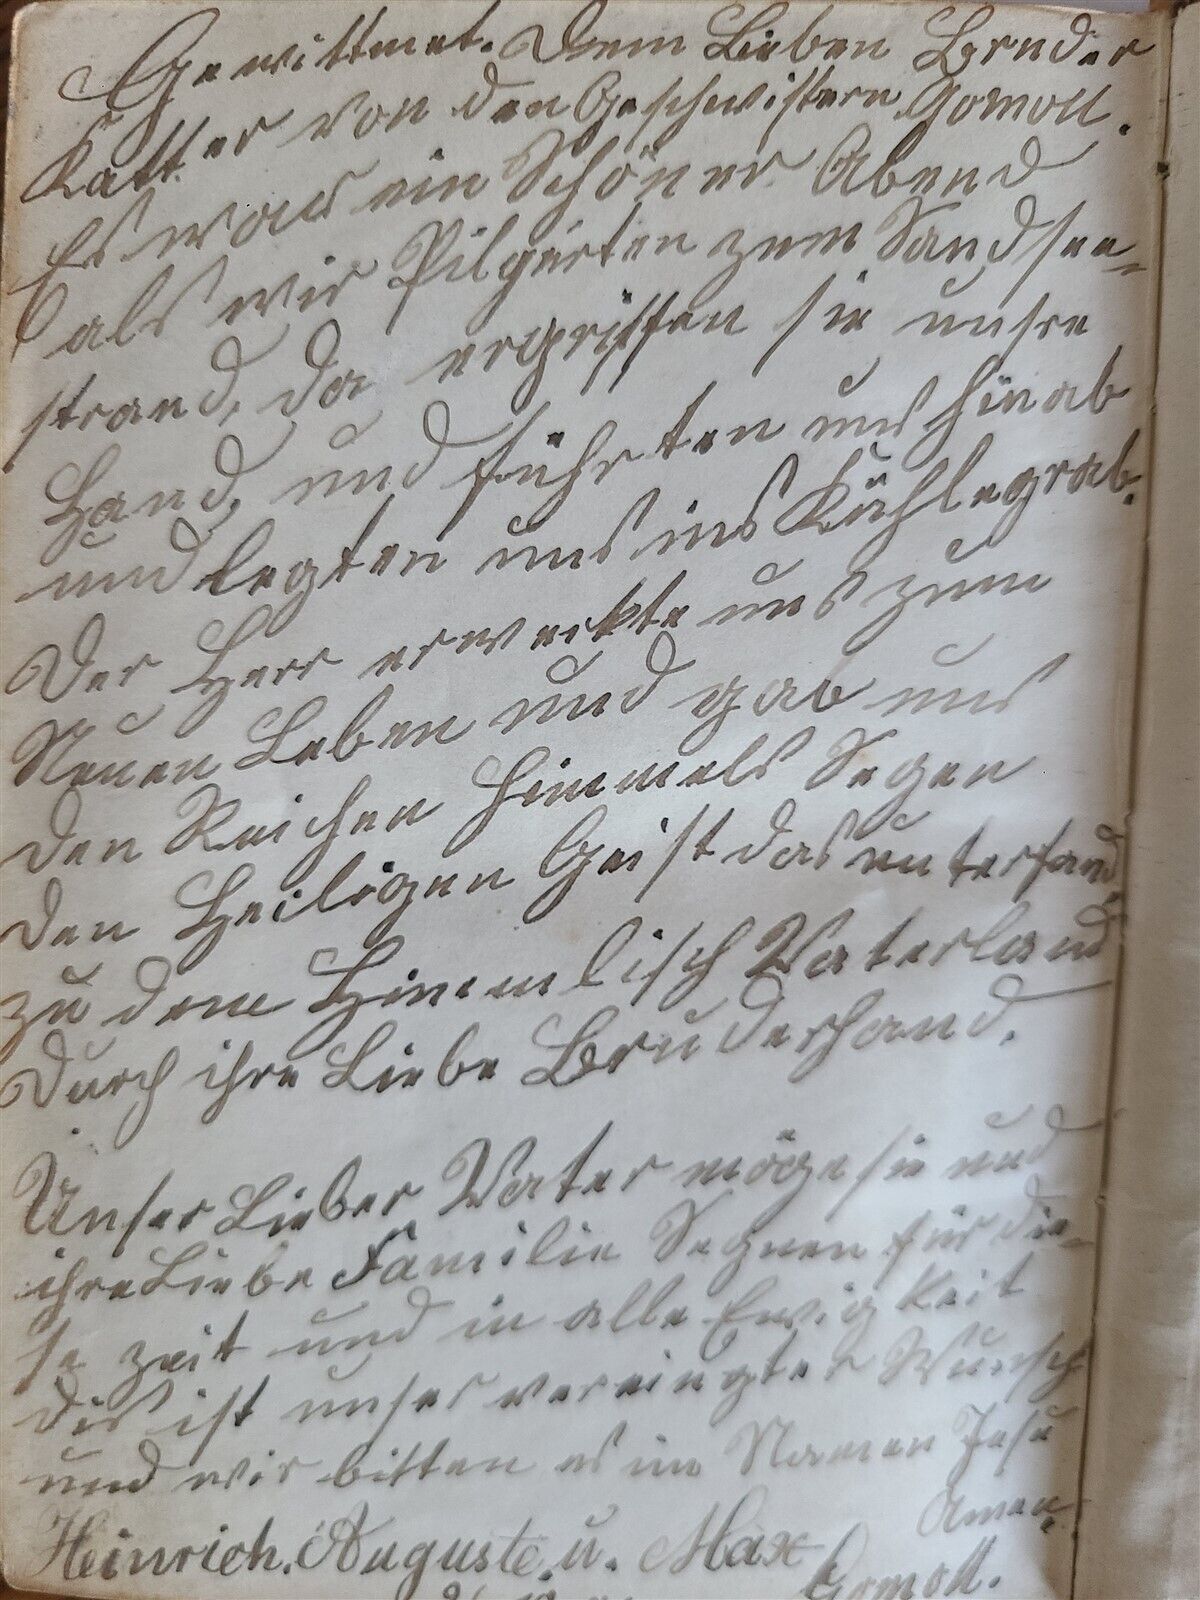 Gewittmet. Dem Lieben Bruder
Katter von den Geschwistern Gomoll.
Es war ein Schöner Abend
als wir Pilgerten zum Sandsee-
strand, da ergriffen sie unsre
Hand, und führten uns hinab
und legten uns ins Kühlegrab.
Der Herr erweckte uns zum
Neuen Leben und gab uns
den Reichen Himmels Segen
den Heiligen Geist das unterfand,
zu dem Himmlisch Vaterland
durch ihre Liebe Bruderhand.
Unser Lieber Vater möge sie und
ihre Liebe Familie Segnen für die-
se zeit und in alle Ewigkeit
dis ist unser vereingter Wunsch
und wir bitten es im Namen Jesu
Amen.
Heinrich, Auguste, u. Max
Gomoll.